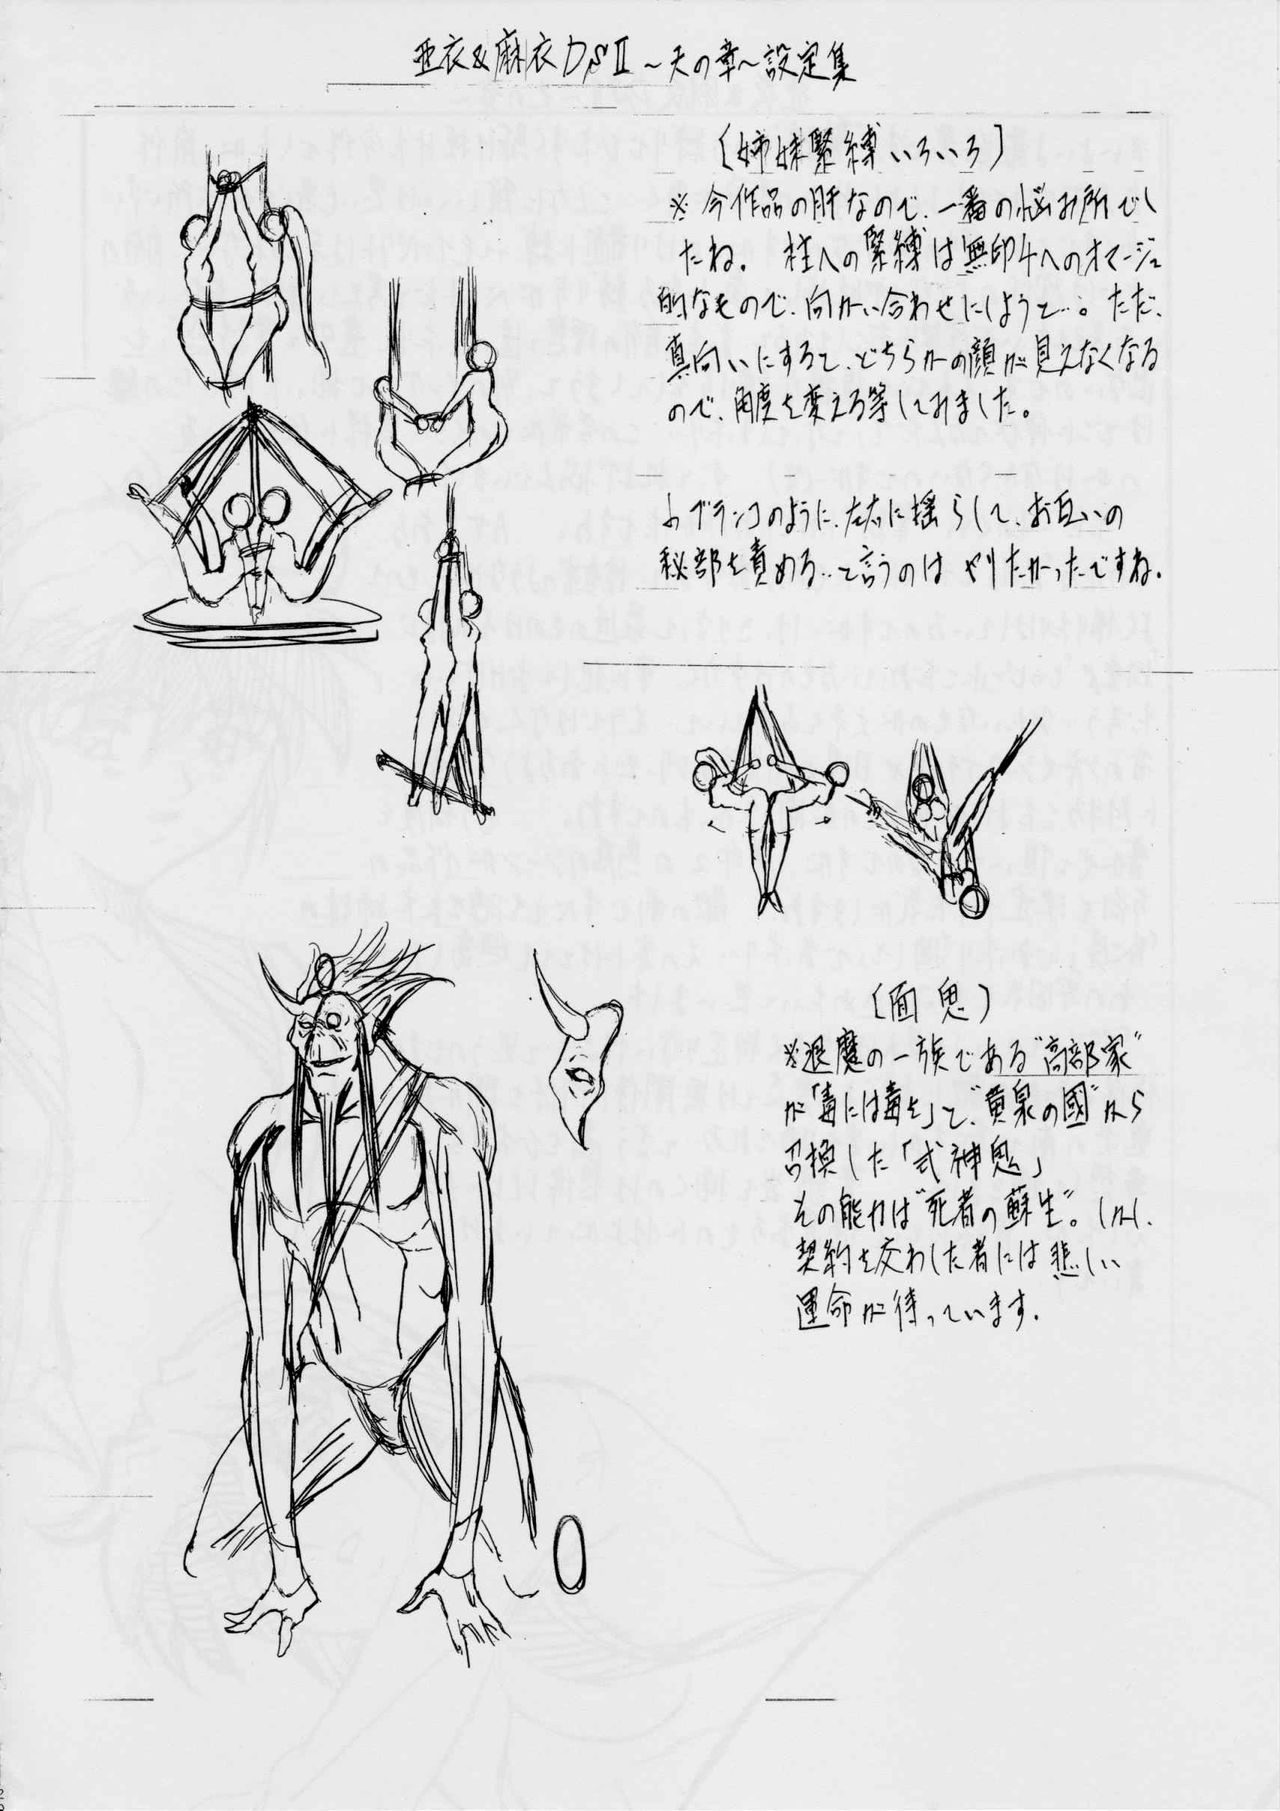 亜衣&麻衣DSⅡ～天の章～設定集
〔姉妹緊縛いろいろ〕
※今作品の肝なので、一番の悩み所でし
たね。柱への緊縛は無印4へのオマージュ
的なもので、向かい合わせにしようと…。ただ、
真向いにすると、どちらかの顔が見えなくなる
ので、角度を変える等してみました。
ブランコのように、左右に揺らして、お互いの
秘部を責める…と言うのはやりたかったですね。
〔面鬼〕
※退魔の一族である"高部家"
が「毒には毒を」で、"黄泉の國"から
召換した「式神鬼」
その能力は"死者の蘇生"。しかし、
契約を交わした者には悲しい
運命が待っています。